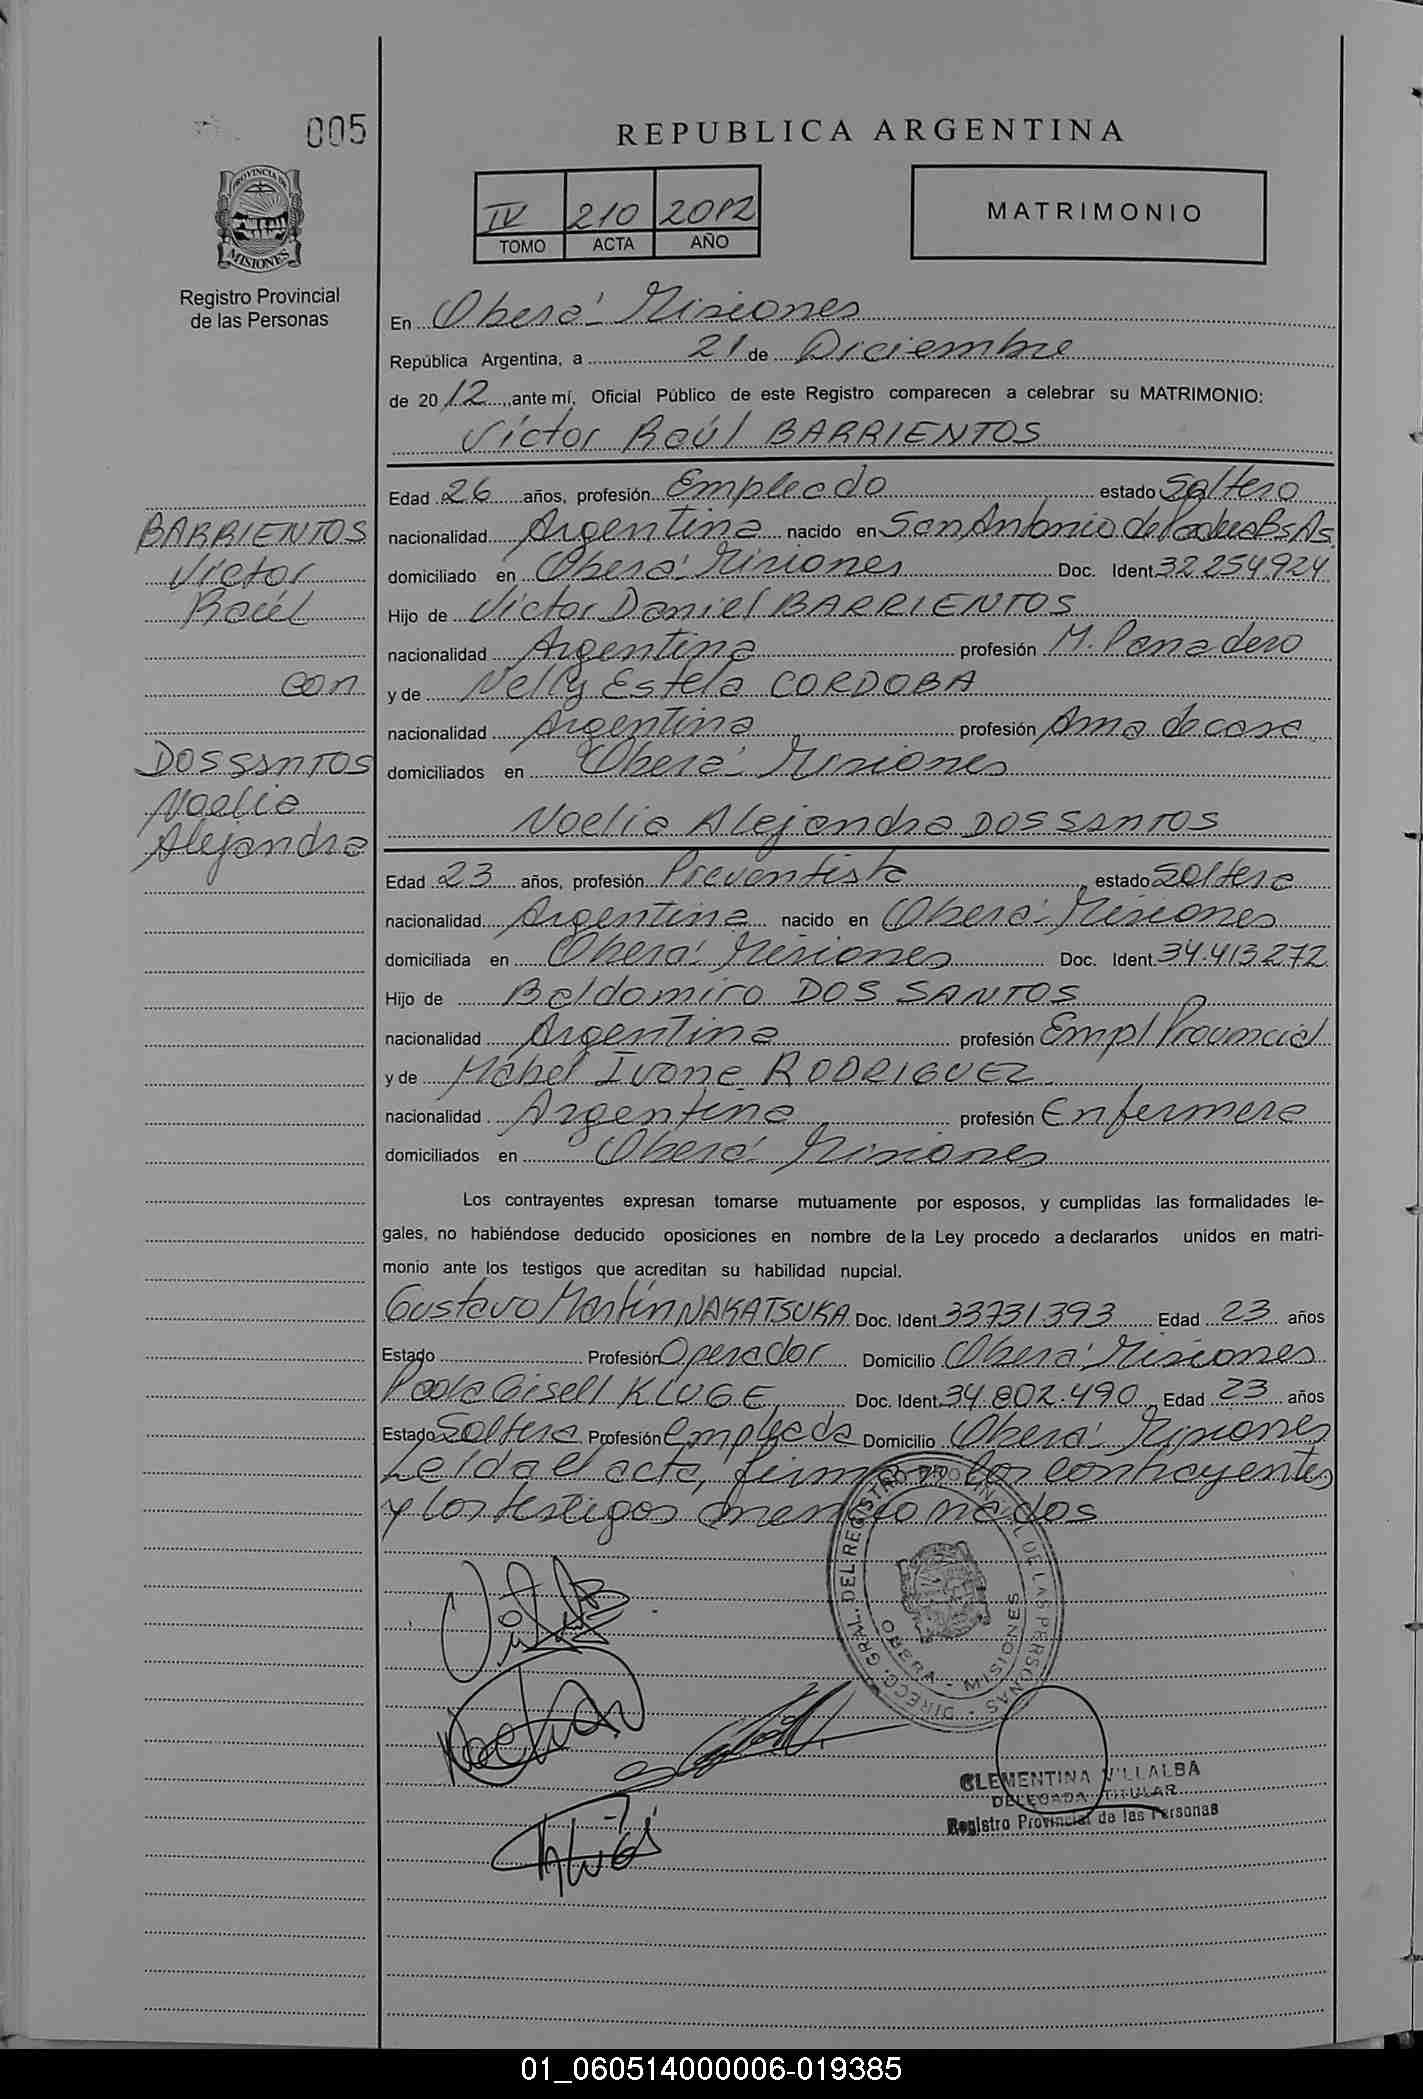 005
REPUBLICA ARGENTINA
PROVINCIA DE
MISIONES
Registro Provincial
de las Personas
IV 210 2012
TOMO ACTA AÑO
MATRIMONIO
En Oberá - Misiones
República Argentina, a 21 de Diciembre
de 2012, ante mí, Oficial Público de este Registro comparecen a celebrar su MATRIMONIO:
Víctor Raúl BARRIENTOS
Edad 26 años, profesión Empleado estado Soltero
nacionalidad Argentina nacido en San Antonio de Padua Bs As.
domiciliado en Oberá - Misiones Doc. Ident. 32.254.924
Hijo de Víctor Daniel BARRIENTOS
nacionalidad Argentina profesión M. Panadero
y de Nelly Estela CORDOBA
nacionalidad Argentina profesión Ama de casa
domiciliados en Oberá - Misiones
BARRIENTOS
Victor
Raúl
con
DOS SANTOS
Noelia
Alejandra
Noelia Alejandra DOS SANTOS
Edad 23 años, profesión Preventista estado Soltera
nacionalidad Argentina nacido en Oberá - Misiones
domiciliada en Oberá - Misiones Doc. Ident. 34.413.272
Hijo de Baldomiro DOS SANTOS
nacionalidad Argentina profesión Empl Provincial
y de Mabel Ivone RODRIGUEZ
nacionalidad Argentina profesión Enfermera
domiciliados en Oberá - Misiones
Los contrayentes expresan tomarse mutuamente por esposos, y cumplidas las formalidades le-
gales, no habiéndose deducido oposiciones en nombre de la Ley procedo a declararlos unidos en matri-
monio ante los testigos que acreditan su habilidad nupcial.
Gustavo Martín NAKATSUKA Doc. Ident. 33731.393 Edad 23 años
Estado Profesión Operador Domicilio Oberá - Misiones
Paola Gisell KLUGE Doc. Ident. 34.802.490 Edad 23 años
Estado Soltera Profesión Empleada Domicilio Oberá - Misiones
Leída el acta, firman los contrayentes
y los testigos mencionados
DIRECC. GRAL. DEL REGISTRO PROVINCIAL DE LAS PERSONAS
OBERA - MISIONES
CLEMENTINA VILLALBA
DELEGADA TITULAR
Registro Provincial de las Personas
01_060514000006-019385